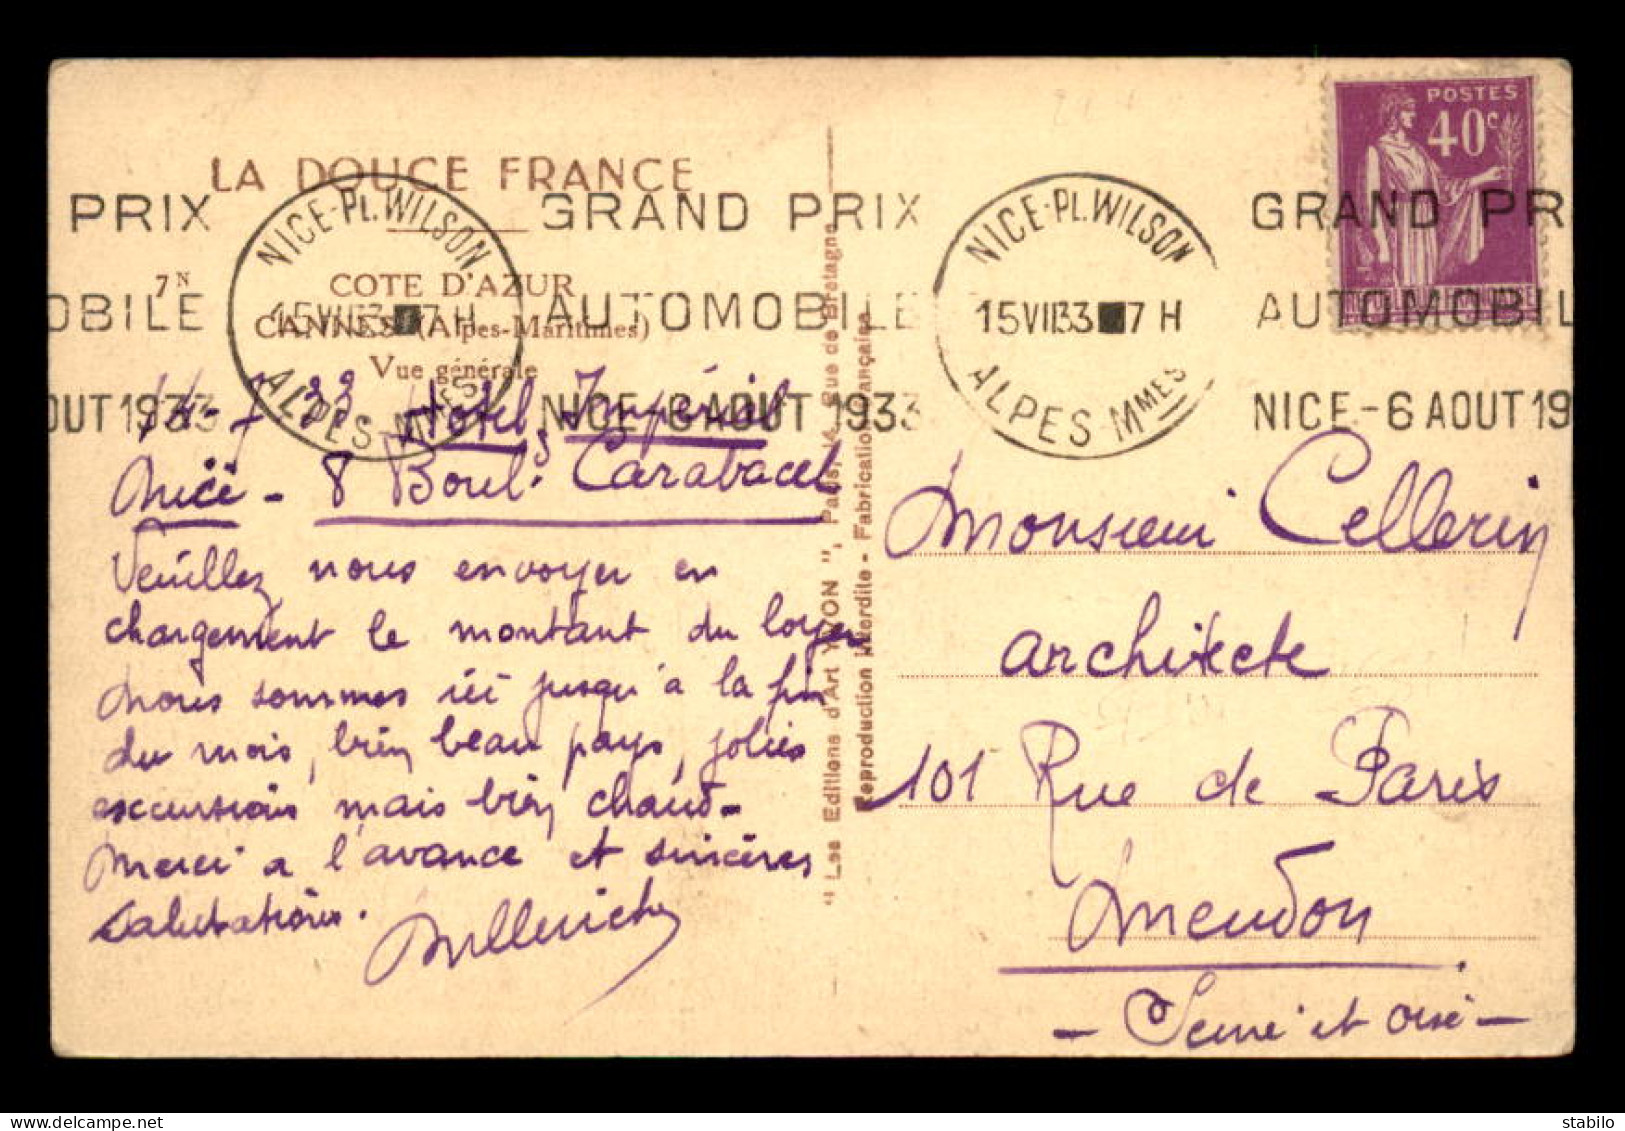 LA DOUCE FRANCE
7N
COTE D'AZUR
CANNES (Alpes-Maritimes)
Vue générale
PRIX GRAND PRIX
OBILE AUTOMOBILE
OUT 1933 NICE-6 AOUT 1933
NICE-PL.WILSON
15VII33 7H
ALPES-MMES
NICE-PL.WILSON
15VII33 7H
ALPES-MMES
GRAND PR
AUTOMOBIL
NICE-6 AOUT 19
POSTES
40c
14-7-33 Hotel Impérial
Nice - 8 Boul. Carabacel
Veuillez nous envoyer en
chargement le montant du loyer
Nous sommes ici jusqu'à la fin
du mois, bien beau pays, jolies
excursions mais bien chaud-
Merci a l'avance et sincères
salutations.
"Les Editions d'Art YVON", Paris, 14, Rue de Bretagne
Reproduction Interdite - Fabrication Française
Monsieur Cellerin
architecte
101 Rue de Paris
Meudon
- Seine et Oise -
stabilo